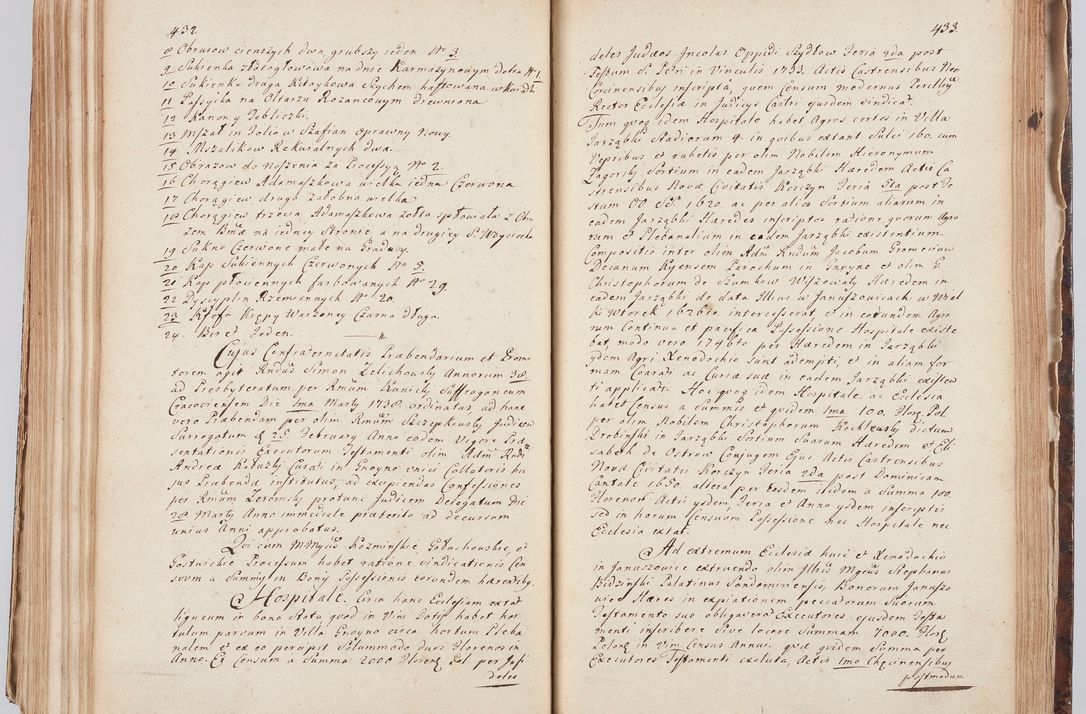 432.
8 Obrusow cienszych dwa, grubszy ieden Nº 3
9 Sukienka złotogłowowa na dnie Karmazynowym dobra Nº 1
10 Sukienka druga Kitaykowa Sychem haftowana w kwiaty
11 Passyika na Ołtarzu Rożancowym drewniana
12 Kanony Tabliczki.
13 Mszał in folio w Szafian oprawny nowy.
14 Mszalikow Rekuialnych dwa.
15 Obrazow do noszenia za Processyą Nº 2.
16 Chorągiew Adamaszkowa wielka iedna Czerwona
17 Chorągiew druga załobna wielka
18 Chorągiew trzecia Adamaszkowa zołta spłowiała z Obra
zem B. na iedney Stronie a na drugiey S. Woyciecha
19 Sukno Czerwone małe na Gradusy.
20 Kap Sukiennych Czerwonych Nº 5.
21 Kap płociennych farbowanych Nº 29.
22 Dyscyplin Rzemiennych Nº 20.
23 Krepy Warzoney Czarna długa.
24 Biret Jeden.
Cujus Confraternitatis Præbendarium et Promo
torem agit Rndus Simon Zelichowsky Annorum 38.
ad Presbyteratum per Rmum Kunicky Suffraganeum
Cracoviensem Die 1ma Marty 1738. ordinatus, ad hanc
vero Præbendam per olim Rmum Szczepkowsky Judicem
Surrogatum d. 25 February Anno eodem Vigore Præ
sentationis Executorum Testamenti olim Adm Rndi
Andreæ Kałuzky Curati in Gnoyno unici Collatoris hu
jus Præbendæ institutus, ad excipiendas Confessiones
per Rmum Zeromsky protunc Judicem Delegatum Die
28 Marty Anno immediate præterito ad decursum
unius Anni approbatus.
Qui cum MMgcis Kozminskie Gołuchowskie, et
Gostwickie Processum habet ratione vindicationis Cen
suum a Summy in Bonis Possessionis eorundem hærentibus.
Hospitale. Circa hanc Ecclesiam extat
ligneum in bono Statu quod in Vim Dotis habet hor
tulum parvum in Villa Gnoyno circa hortum Pleba
nalem et ex eo percipit Solummodo duos Florenos in
Anno. Et Censum a Summa 2000 Floren Pol per Infi
deles
433.
deles Judæos Incolas Oppidi Szydłow feria 2da post
Festum S. Petri in Vinculis 1733. Actis Castrensibus Neo
Corcinensibus inscripta, quem Censum modernus
Rector Ecclesiæ in Judicys Castri ejusdem vindicat.
Tum quoq idem Hospitale habet Agros certos in Villa
Jarząbki Stadiorum 4. in quibus extant Sulci 160. cum
Vepribus et rubetis per olim Nobilem Hieronymum
Zagorsky Sortium in eadem Jarząbki Hæredem Actis Ca
strensibus Novæ Civitatis Korczyn feria 5ta post fe
stum OO SS. 1620. ac per alios Sortium aliarum in
eadem Jarząbki Hæredes inscriptos ratione quorum Agro
rum et Plebanalium in eadem Jarząbki existentium
Compositio inter olim Adm Rndum Jacobum Promecium
Decanum Kyensem Parochum in Gnoyno et olim G.
Christophorum de Szumkow Wiszowaty Hæredem in
eadem Jarząbki de data Illius w Januszowicach w Wiel
ki Wtorek 1626to intercesserat, et in eorundem Agro
rum Continua et pacifica Possessione Hospitale existe
bat, modo vero 1746to per Hæredem in Jarząbki
ydem Agri Xenodochio Sunt adempti, et in aliam for
mam Coarati ac Curiæ suæ in eadem Jarząbki existen
ti applicati. Hoc quoq idem Hospitale ac Ecclesia
habet Census a Summis et quidem 1ma 100. Flor Pol
per olim Nobilem Christophorum Rochlewsky dictum
Drobinski in Jarząbki Sortium Suarum Hæredem et Eli
sabeth de Ostrow Conjugem Ejus Actis Castrensibus
Novæ Civitatis Korczyn feria 2da post Dominicam
Cantate 1650. altera per eosdem itidem a Summa 100.
Florenor Actis ysdem feria et Anno ysdem inscriptis
Sed in horum Censuum Possessione nec Hospitale nec
Ecclesia extat.
Ad extremum Ecclesiæ huic et Xenodochio
in Januszowice extruendo olim Illris Mgcus Stephanus
Bidzinski Palatinus Sandomiriensis, Bonorum Januszo
wice Hæres in expiationem peccatorum Suorum
Testamento suo obligaverat Executores ejusdem Testa
menti inscribere sive locare Summam 7000. Flor
Polon in Vim Census Annui. quæ quidem Summa per
Executores Testamenti exoluta, Actis 1mo Chęcinensibus
postmodum